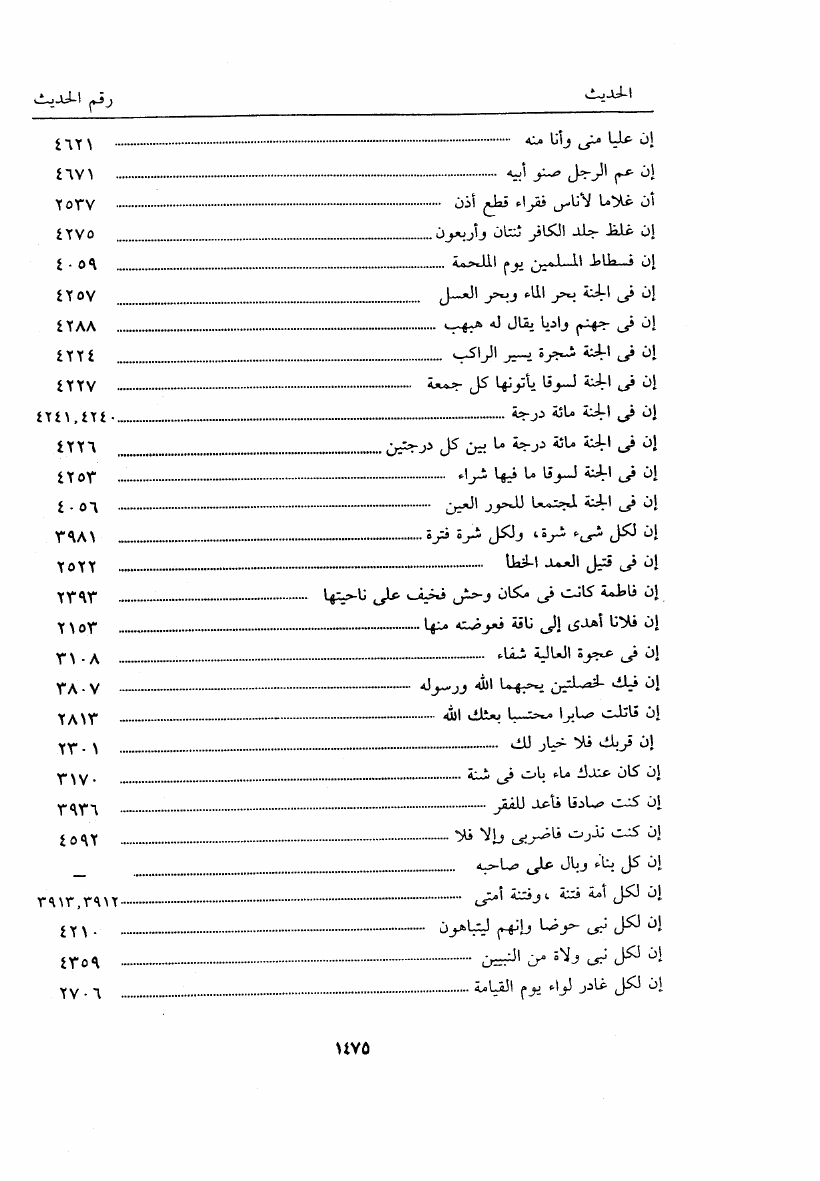 الحديث رقم الحديث
إن عليا منى وأنا منه ٤٦٢١
إن عم الرجل صنو أبيه ٤٦٧١
أن غلاما لأناس فقراء قطع أذن ٢٥٣٧
إن غلظ جلد الكافر ثنتان وأربعون ٤٢٧٥
إن فسطاط المسلمين يوم الملحمة ٤٠٥٩
إن فى الجنة بحر الماء وبحر العسل ٤٢٥٧
إن فى جهنم واديا يقال له هبهب ٤٢٨٨
إن فى الجنة شجرة يسير الراكب ٤٢٢٤
إن فى الجنة لسوقا يأتونها كل جمعة ٤٢٢٧
إن فى الجنة مائة درجة ٤٢٤١,٤٢٤٠
إن فى الجنة مائة درجة ما بين كل درجتين ٤٢٢٦
إن فى الجنة لسوقا ما فيها شراء ٤٢٥٣
إن فى الجنة لمجتمعا للحور العين ٤٠٥٦
إن لكل شىء شرة، ولكل شرة فترة ٣٩٨١
إن فى قتيل العمد الخطأ ٢٥٢٢
إن فاطمة كانت فى مكان وحش فخيف على ناحيتها ٢٣٩٣
إن فلانا أهدى إلى ناقة فعوضته منها ٢١٥٣
إن فى عجوة العالية شفاء ٣١٠٨
إن فيك لخصلتين يحبهما الله ورسوله ٣٨٠٧
إن قاتلت صابرا محتسبا بعثك الله ٢٨١٣
إن قربك فلا خيار لك ٢٣٠١
إن كان عندك ماء بات فى شنة ٣١٧٠
إن كنت صادقا فأعد للفقر ٣٩٣٦
إن كنت نذرت فاضربى وإلا فلا ٤٥٩٢
إن كل بناء وبال على صاحبه –
إن لكل أمة فتنة ، وفتنة أمتى ٣٩١٣,٣٩١٢
إن لكل نبى حوضا وإنهم ليتباهون ٤٢١٠
إن لكل نبى ولاة من النبيين ٤٣٥٩
إن لكل غادر لواء يوم القيامة ٢٧٠٦
١٤٧٥